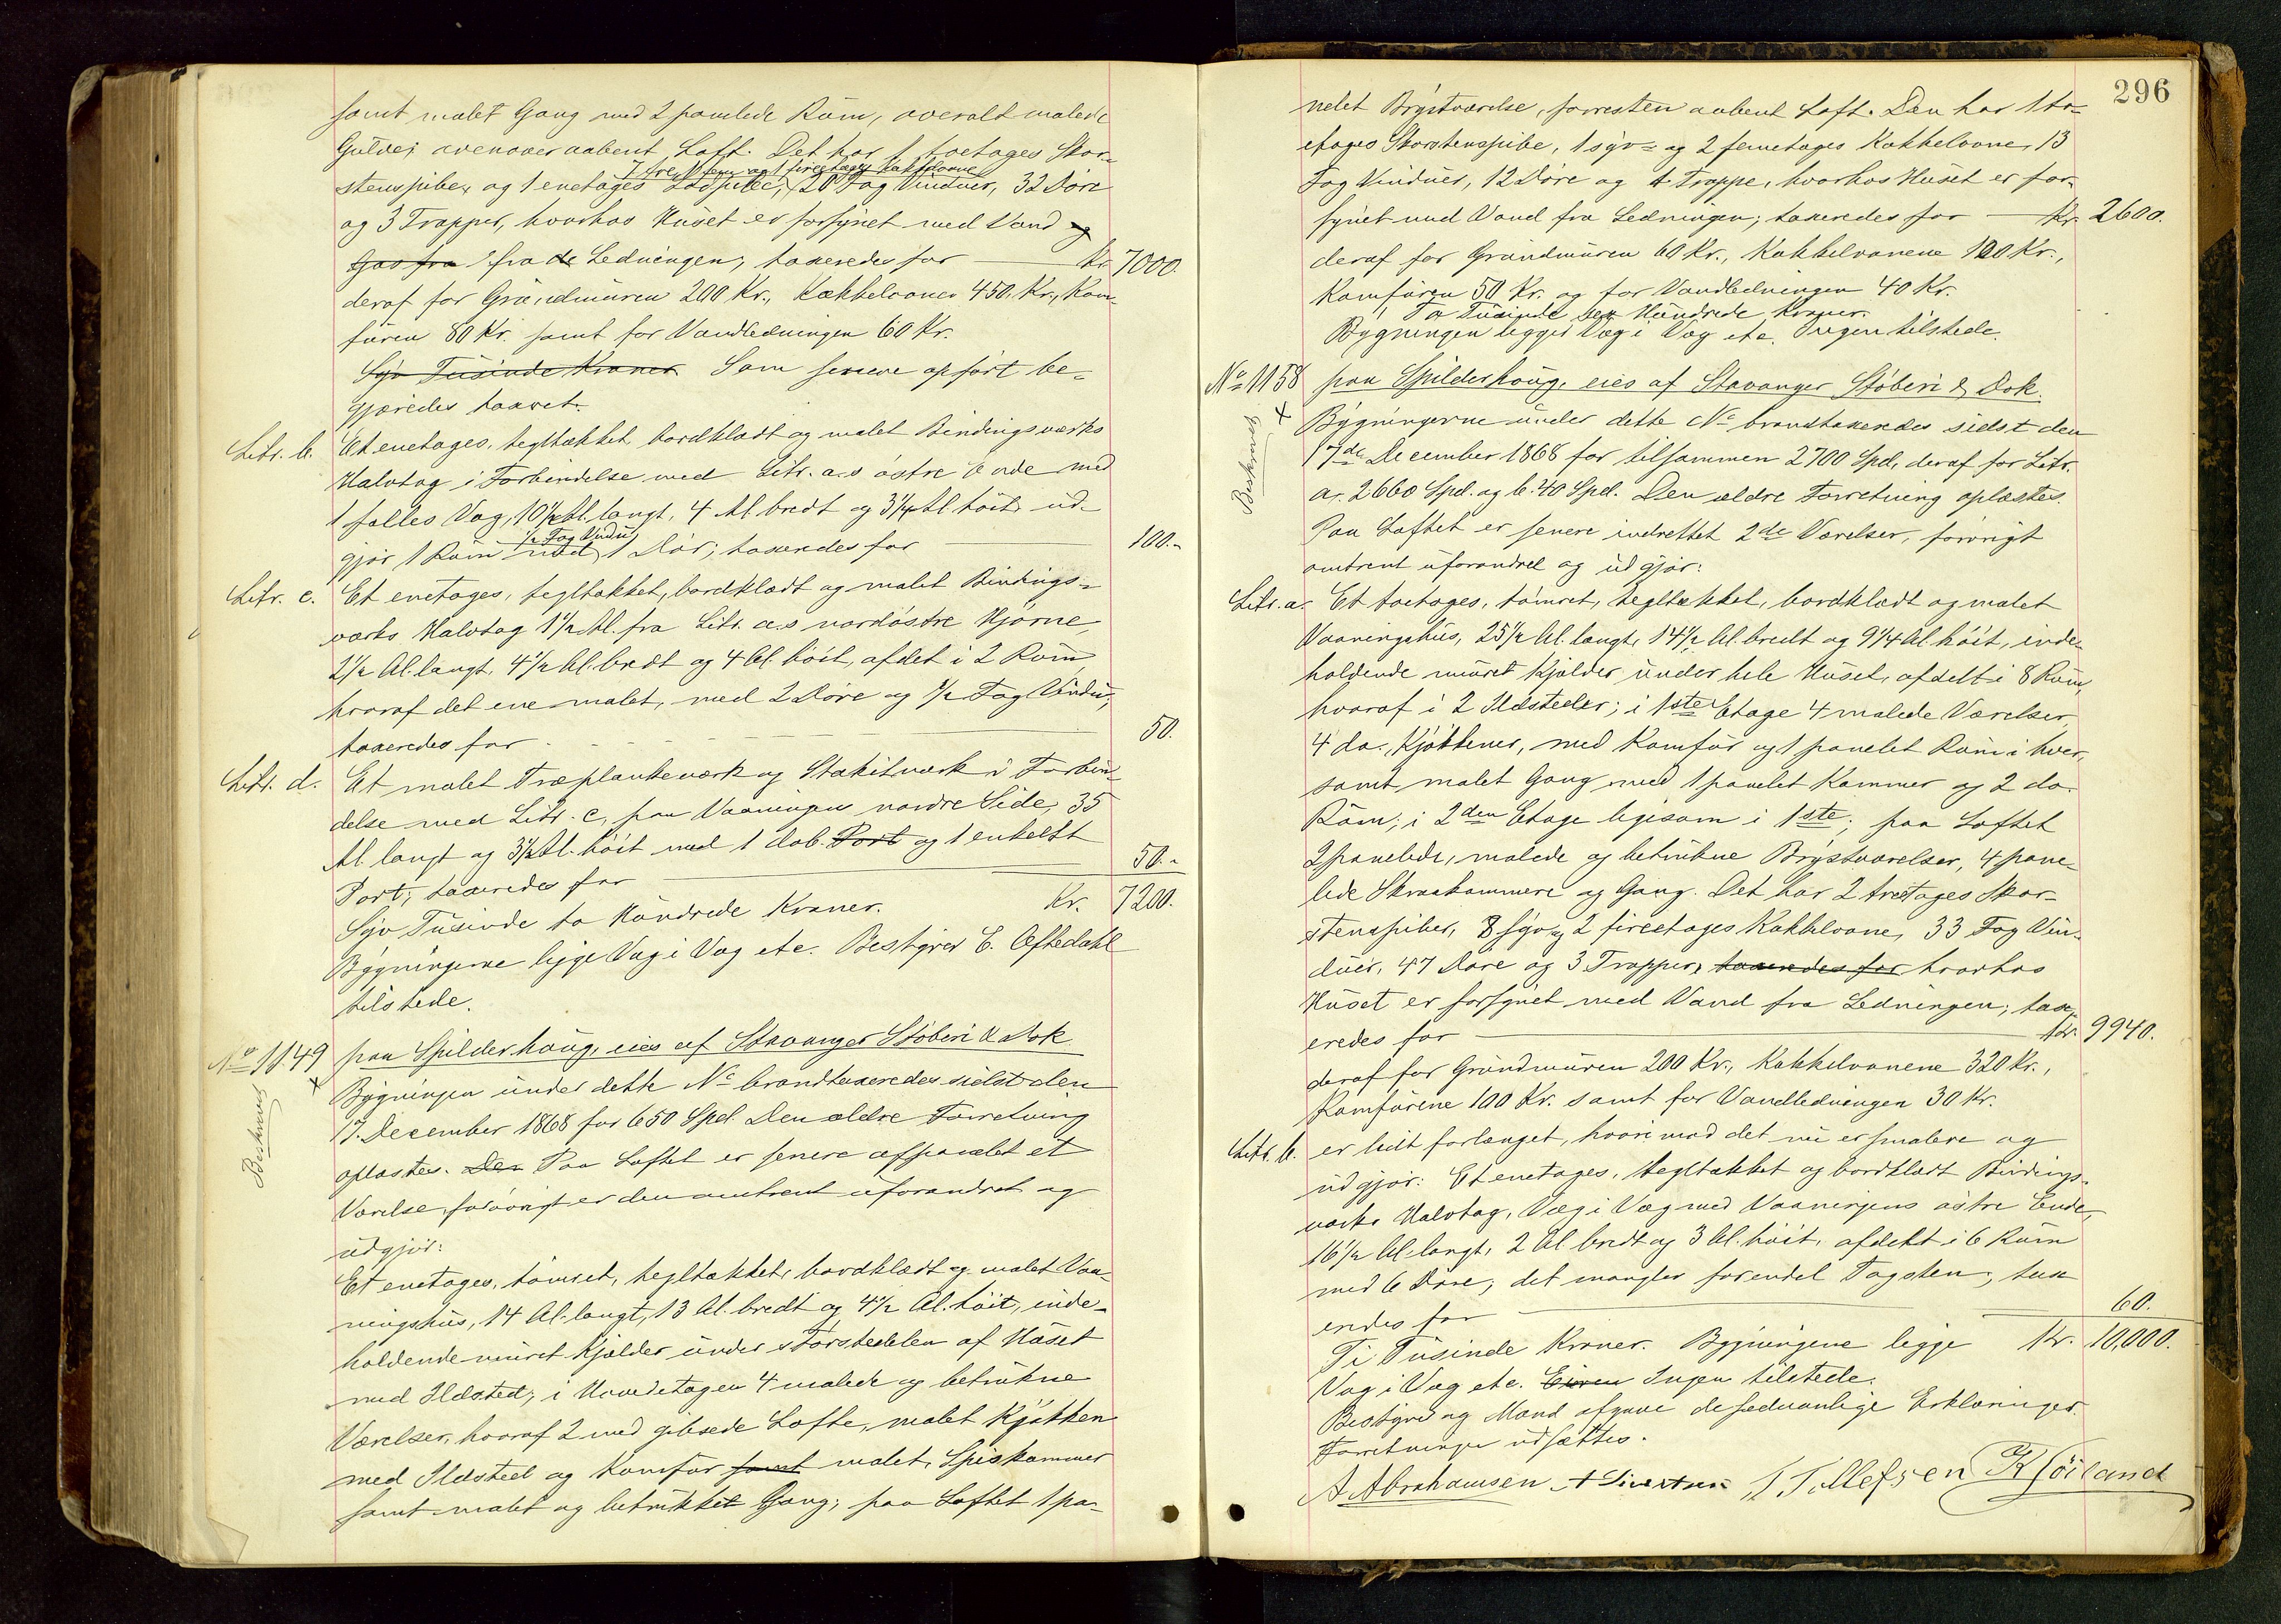 samt malet Gang med 2 panelede Rum, overalt malede
Gulve; ovenover aabent Loft. Det har 1 toetages Skor-
7 tre, 1 fem og 1 fireetages Kakkelovne
stenspibe, og 1 enetages Lodpibe, 20 Fag Vinduer, 32 Döre
og 3 Trapper, hvorhos Huset er forsynet med Vand og
Gas fra fra de Ledningen; taxeredes for — Kr. 7000.
deraf for Grundmuren 200 Kr., Kakkelovner 450 Kr., Kom-
füren 80 Kr. samt for Vandledningen 60 Kr.
Syv Tusinde Kroner Som senere opfört be-
gjæredes taxeret.
Litr. b. Et enetages, tegltækket, bordklædt og malet Bindingsværks
Halvtag i Forbindelse med Litr. a.s östre Ende med
1 fælles Væg, 10½ Al. langt, 4 Al. bredt og 3¼ Al. höit, ud-
½ Fag Vindu
gjör 1 Rum med 1 Dör; taxeredes for — 100.-
Litr. c. Et enetages, tegltækket, bordklædt og malet Bindings-
værks Halvtag 1½ Al. fra Litr. a.s nordöstre Hjörne,
2½ Al. langt, 4½ Al. bredt og 4 Al. höit, afdelt i 2 Rum,
hvoraf det ene malet, med 2 Döre og ½ Fag Vindu;
taxeredes for — 50.
Litr. d. Et malet Træplankeværk og Stakitværk i Forbin-
delse med Litr. c, paa Vaaningens nordre Side, 35
Al. langt og 3½ Al. höit med 1 dob. Port og 1 enkelt
Port; taxeredes for — 50.-
Syv Tusinde to Hundrede Kroner. Kr. 7200.
Bygningerne ligge Væg i Væg etc. Bestyrer E. Aftedahl
tilstede.
No 1149 paa Spilderhaug, eies af Stavanger Stöberi & Dok
Beskrevet
Bygningen under dette No brandtaxeredes sidst den
17. December 1868 for 650 Spd. Den ældre Forretning
oplæstes. Den Paa Loftet er senere afpanelet et
Værelse, forövrigt er den omtrent uforandret og
udgjör:
Et enetages, tömret, tegltækket, bordklædt og malet Vaa-
ningshus, 14 Al. langt, 13 Al. bredt og 4½ Al. höit, inde-
holdende muret Kjælder under störstedelen af Huset
med Ildsted; i Hovedetagen 4 malede og betrukne
Værelser, hvoraf 2 med gibsede Lofte, malet Kjökken
med Ildsted og Komfür samt malet Spiskammer
samt malet og betrukket Gang; paa Loftet 1 pa-
296
nelet Brystværelse, forresten aabent Loft. Den har 1 to-
etages Skorstenspibe, 1 syv- og 2 femetages Kakkelovne, 13
Fag Vinduer, 12 Döre og 1 Trappe, hvorhos Huset er for-
synet med Vand fra Ledningen; taxeredes for — Kr. 2600.
deraf for Grundmuren 60 Kr., Kakkelovnene 100 Kr.,
Komfüren 50 Kr. og for Vandledningen 40 Kr.
To Tusinde sex Hundrede Kroner.
Bygningen ligger Væg i Væg etc. Ingen tilstede.
No 1158 paa Spilderhaug, eies af Stavanger Stöberi & Dok.
Beskrevet
Bygningerne under dette No brandtaxeredes sidst den
17de December 1868 for tilsammen 2700 Spd., deraf for Litr.
a. 2660 Spd. og b. 40 Spd. Den ældre Forretning oplæstes.
Paa Loftet er senere indrettet 2de Værelser, forövrigt
omtrent uforandret og udgjör:
Litr. a. Et toetages, tömret, tegltækket, bordklædt og malet
Vaaningshus, 25½ Al. langt, 14½ Al. bredt og 9¼ Al. höit, inde-
holdende muret Kjælder under hele Huset, afdelt i 8 Rum,
hvoraf i 2 Ildsteder; i 1ste Etage 4 malede Værelser,
4 do. Kjökkener, med Komfür og 1 panelet Rum i hver,
samt malet Gang med 1 panelet Kammer og 2 do.
Rum; i 2den Etage ligesom i 1ste; paa Loftet
2 panelede, malede og betrukne Brystværelser, 4 pane-
lede Skraakammere og Gang. Det har 2 treetages Skor-
stenspiber, 8 syv og 2 fireetages Kakkelovne, 33 Fag Vin-
duer, 47 Döre og 3 Trapper, taxeredes for hvorhos
Huset er forsynet med Vand fra Ledningen; tax-
eredes for — Kr. 9940.
deraf for Grundmuren 200 Kr., Kakkelovnene 320 Kr.,
Komfürene 100 Kr. samt for Vandledningen 30 Kr.
Litr. b. er lidt forlænget, hvorimod det nu er smalere og
udgjör: Et enetages, tegltækket og bordklædt Bindings-
værks Halvtag, Væg i Væg med Vaaningens östre Ende,
16½ Al. langt, 2 Al. bredt og 3 Al. höit, afdelt i 6 Rum
med 6 Döre; det mangler forendel Tagsten; tax-
eredes for — 60.
Ti Tusinde Kroner. Bygningene ligge Kr. 10,000.
Væg i Væg etc. Eieren Ingen tilstede.
Bestyrer og Mænd afgave de sædvanlige Erklæringer.
Forretningen udsættes.
A Abrahamsen A Sivertsen T Tollefsen K Höiland